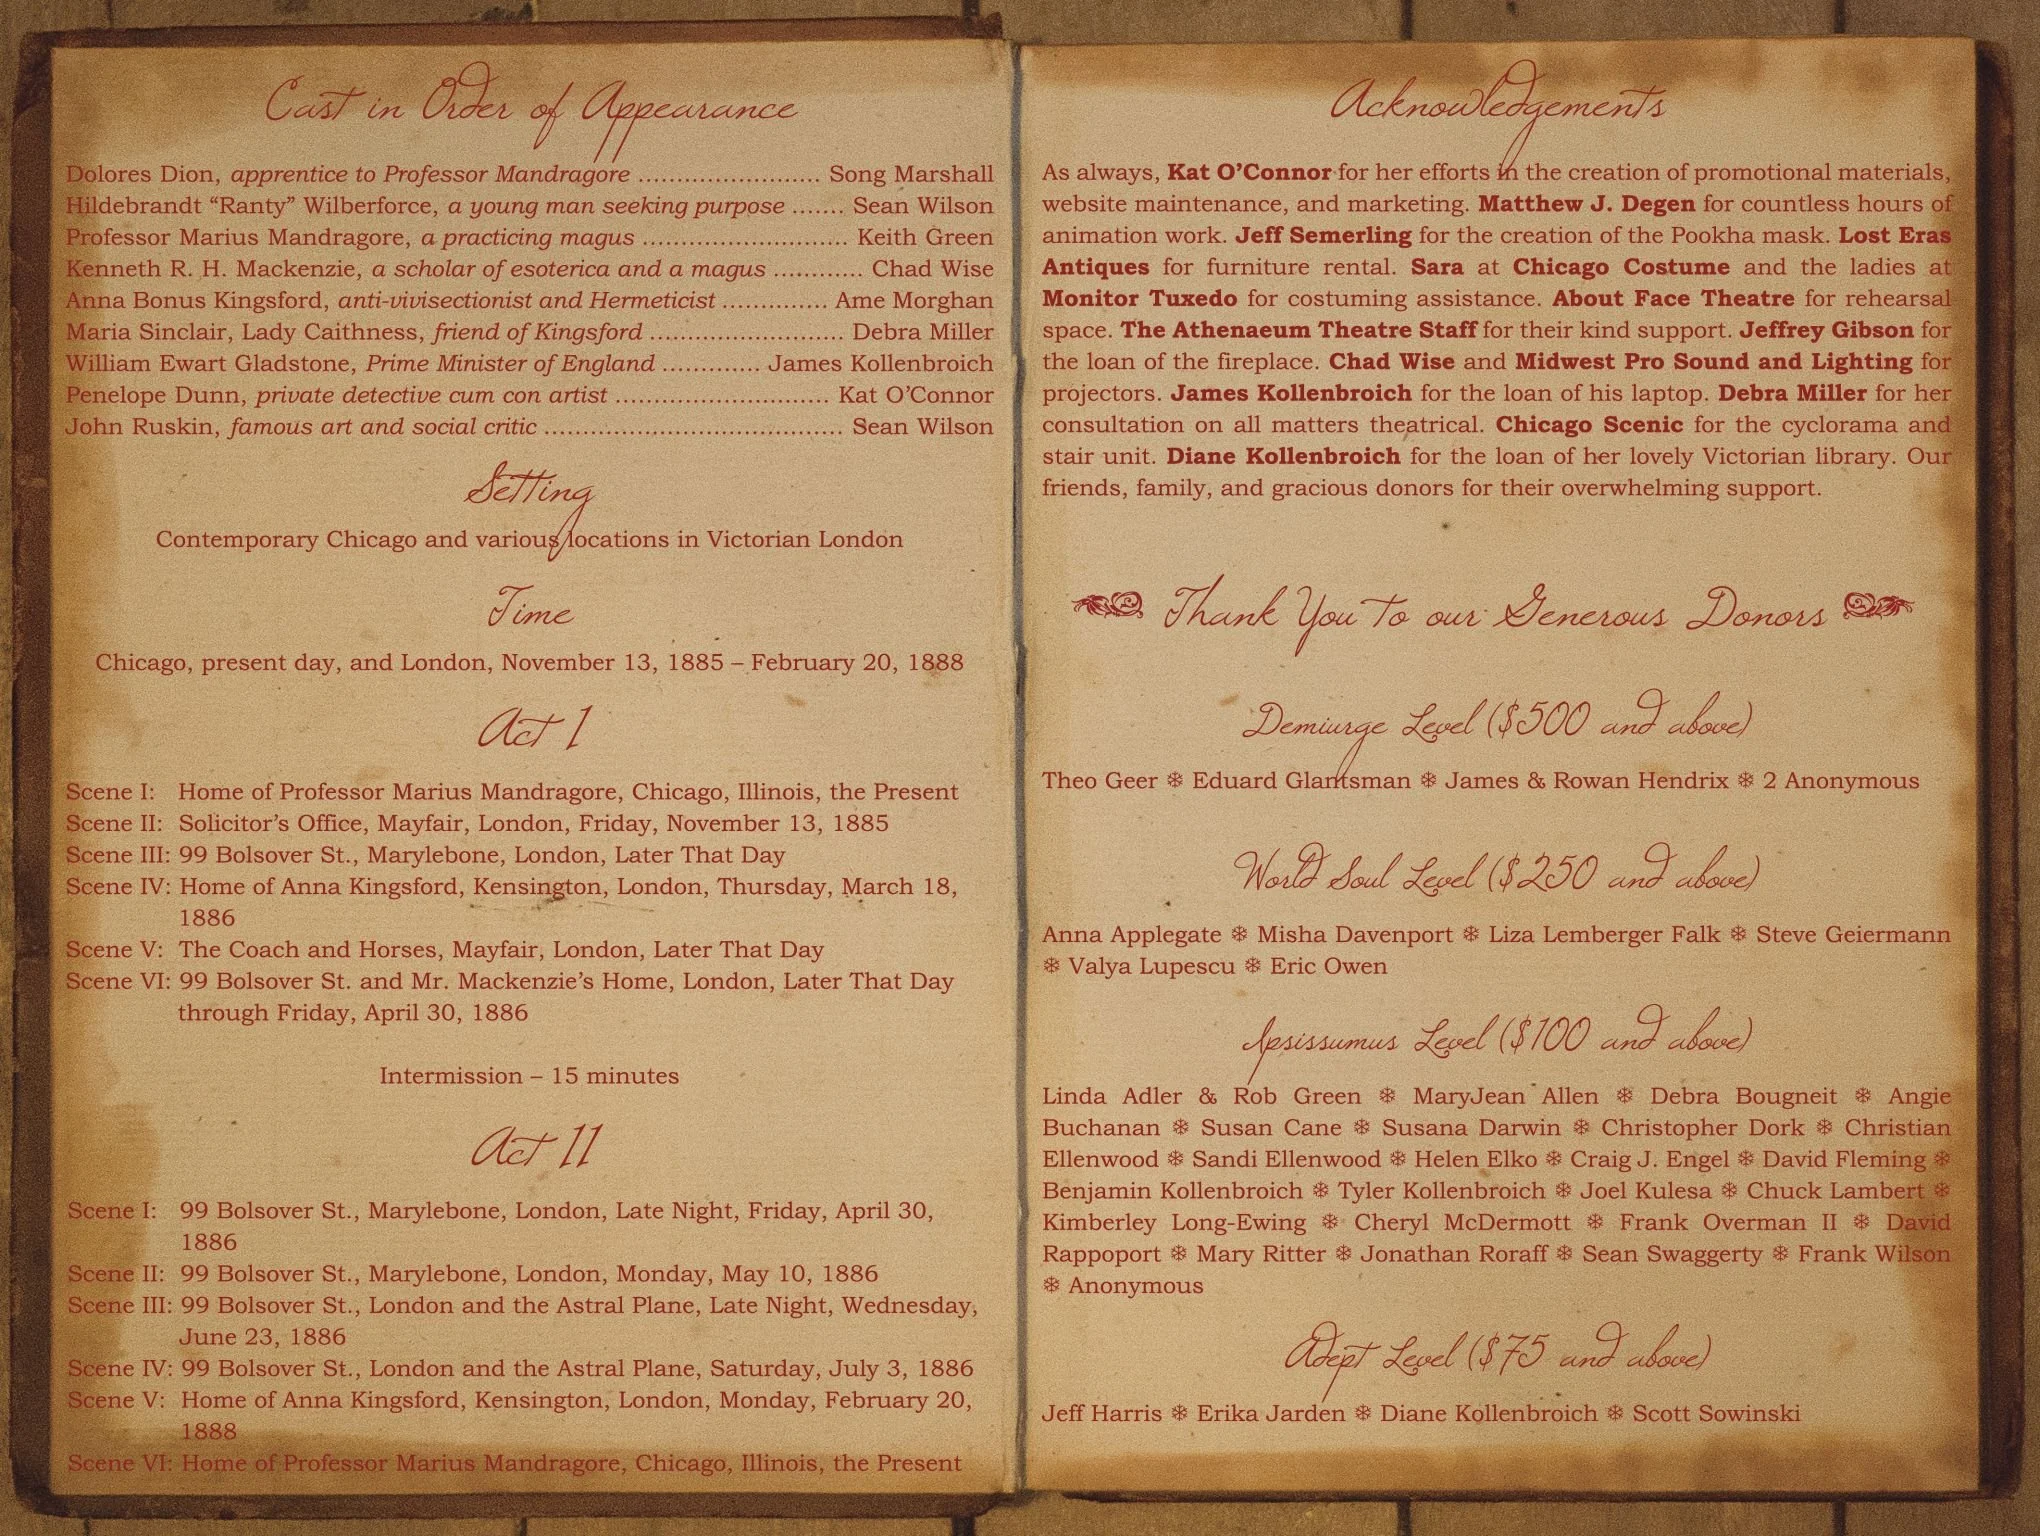 Cast in Order of Appearance
Dolores Dion, apprentice to Professor Mandragore ........................ Song Marshall
Hildebrandt “Ranty” Wilberforce, a young man seeking purpose ....... Sean Wilson
Professor Marius Mandragore, a practicing magus ........................... Keith Green
Kenneth R. H. Mackenzie, a scholar of esoterica and a magus ............ Chad Wise
Anna Bonus Kingsford, anti-vivisectionist and Hermeticist .............. Ame Morghan
Maria Sinclair, Lady Caithness, friend of Kingsford ........................... Debra Miller
William Ewart Gladstone, Prime Minister of England ............. James Kollenbroich
Penelope Dunn, private detective cum con artist ............................ Kat O’Connor
John Ruskin, famous art and social critic ....................................... Sean Wilson
Setting
Contemporary Chicago and various locations in Victorian London
Time
Chicago, present day, and London, November 13, 1885 – February 20, 1888
Act I
Scene I: Home of Professor Marius Mandragore, Chicago, Illinois, the Present
Scene II: Solicitor’s Office, Mayfair, London, Friday, November 13, 1885
Scene III: 99 Bolsover St., Marylebone, London, Later That Day
Scene IV: Home of Anna Kingsford, Kensington, London, Thursday, March 18,
1886
Scene V: The Coach and Horses, Mayfair, London, Later That Day
Scene VI: 99 Bolsover St. and Mr. Mackenzie’s Home, London, Later That Day
through Friday, April 30, 1886
Intermission – 15 minutes
Act II
Scene I: 99 Bolsover St., Marylebone, London, Late Night, Friday, April 30,
1886
Scene II: 99 Bolsover St., Marylebone, London, Monday, May 10, 1886
Scene III: 99 Bolsover St., London and the Astral Plane, Late Night, Wednesday,
June 23, 1886
Scene IV: 99 Bolsover St., London and the Astral Plane, Saturday, July 3, 1886
Scene V: Home of Anna Kingsford, Kensington, London, Monday, February 20,
1888
Scene VI: Home of Professor Marius Mandragore, Chicago, Illinois, the Present
Acknowledgements
As always, Kat O’Connor for her efforts in the creation of promotional materials,
website maintenance, and marketing. Matthew J. Degen for countless hours of
animation work. Jeff Semerling for the creation of the Pookha mask. Lost Eras
Antiques for furniture rental. Sara at Chicago Costume and the ladies at
Monitor Tuxedo for costuming assistance. About Face Theatre for rehearsal
space. The Athenaeum Theatre Staff for their kind support. Jeffrey Gibson for
the loan of the fireplace. Chad Wise and Midwest Pro Sound and Lighting for
projectors. James Kollenbroich for the loan of his laptop. Debra Miller for her
consultation on all matters theatrical. Chicago Scenic for the cyclorama and
stair unit. Diane Kollenbroich for the loan of her lovely Victorian library. Our
friends, family, and gracious donors for their overwhelming support.
Thank You to our Generous Donors
Demiurge Level ($500 and above)
Theo Geer ❄ Eduard Glantsman ❄ James & Rowan Hendrix ❄ 2 Anonymous
World Soul Level ($250 and above)
Anna Applegate ❄ Misha Davenport ❄ Liza Lemberger Falk ❄ Steve Geiermann
❄ Valya Lupescu ❄ Eric Owen
Ipsissumus Level ($100 and above)
Linda Adler & Rob Green ❄ MaryJean Allen ❄ Debra Bougneit ❄ Angie
Buchanan ❄ Susan Cane ❄ Susana Darwin ❄ Christopher Dork ❄ Christian
Ellenwood ❄ Sandi Ellenwood ❄ Helen Elko ❄ Craig J. Engel ❄ David Fleming ❄
Benjamin Kollenbroich ❄ Tyler Kollenbroich ❄ Joel Kulesa ❄ Chuck Lambert ❄
Kimberley Long-Ewing ❄ Cheryl McDermott ❄ Frank Overman II ❄ David
Rappoport ❄ Mary Ritter ❄ Jonathan Roraff ❄ Sean Swaggerty ❄ Frank Wilson
❄ Anonymous
Adept Level ($75 and above)
Jeff Harris ❄ Erika Jarden ❄ Diane Kollenbroich ❄ Scott Sowinski